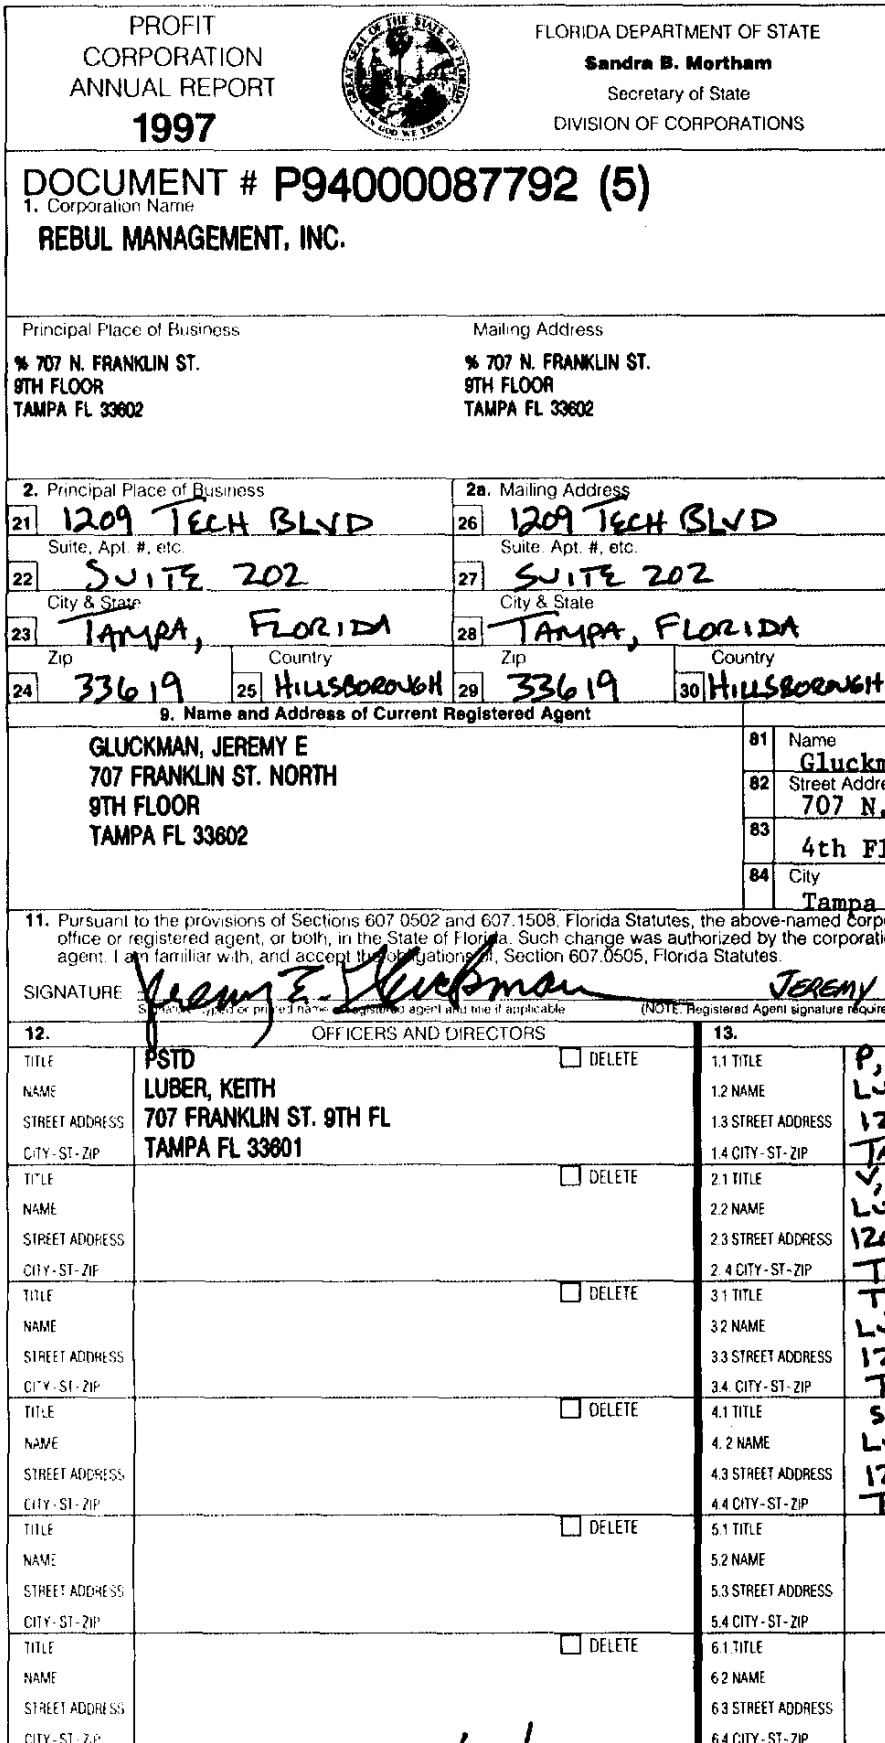 PROFIT
CORPORATION
ANNUAL REPORT
1997
GREAT SEAL OF THE STATE OF FLORIDA
IN GOD WE TRUST
FLORIDA DEPARTMENT OF STATE
Sandra B. Mortham
Secretary of State
DIVISION OF CORPORATIONS
DOCUMENT # P94000087792 (5)
1. Corporation Name
REBUL MANAGEMENT, INC.
Principal Place of Business
% 707 N. FRANKLIN ST.
9TH FLOOR
TAMPA FL 33602
Mailing Address
% 707 N. FRANKLIN ST.
9TH FLOOR
TAMPA FL 33602
2. Principal Place of Business
21 1209 TECH BLVD
Suite, Apt. #, etc.
22 SUITE 202
City & State
23 TAMPA, FLORIDA
Zip Country
24 33619 25 HILLSBOROUGH
2a. Mailing Address
26 1209 TECH BLVD
Suite. Apt. #, etc.
27 SUITE 202
City & State
28 TAMPA, FLORIDA
Zip Country
29 33619 30 HILLSBOROUGH
9. Name and Address of Current Registered Agent
GLUCKMAN, JEREMY E
707 FRANKLIN ST. NORTH
9TH FLOOR
TAMPA FL 33602
81 Name
Gluckm
82 Street Addre
707 N.
83
4th Fl
84 City
Tampa
11. Pursuant to the provisions of Sections 607 0502 and 607.1508, Florida Statutes, the above-named corp
office or registered agent, or both, in the State of Florida. Such change was authorized by the corporati
agent. I am familiar with, and accept the obligations of, Section 607.0505, Florida Statutes.
SIGNATURE Jeremy E. Gluckman JEREMY
Signature, typed or printed name of registered agent and title if applicable (NOTE: Registered Agent signature require
12. OFFICERS AND DIRECTORS 13.
TITLE PSTD DELETE
NAME LUBER, KEITH
STREET ADDRESS 707 FRANKLIN ST. 9TH FL
CITY-ST-ZIP TAMPA FL 33601
TITLE DELETE
NAME
STREET ADDRESS
CITY-ST-ZIP
TITLE DELETE
NAME
STREET ADDRESS
CITY-ST-ZIP
TITLE DELETE
NAME
STREET ADDRESS
CITY-ST-ZIP
TITLE DELETE
NAME
STREET ADDRESS
CITY-ST-ZIP
TITLE DELETE
NAME
STREET ADDRESS
CITY-ST-ZIP
1.1 TITLE P,
1.2 NAME LU
1.3 STREET ADDRESS 12
1.4 CITY-ST-ZIP TA
2.1 TITLE V,
2.2 NAME LU
2.3 STREET ADDRESS 120
2.4 CITY-ST-ZIP T
3 1 TITLE T
3 2 NAME LU
3.3 STREET ADDRESS 12
3.4. CITY-ST-ZIP T
4.1 TITLE S
4. 2 NAME L
4.3 STREET ADDRESS 12
4.4 CITY-ST-ZIP T
5.1 TITLE
5.2 NAME
5.3 STREET ADDRESS
5.4 CITY-ST-ZIP
6.1 TITLE
6 2 NAME
6 3 STREET ADDRESS
6.4 CITY-ST-ZIP